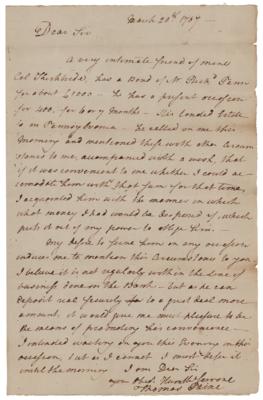 March 20th 1787
Dear Sir
A very intimate friend of mine
Col Kirkbride, has a Bond of Mr Richd Penn
for about £1000 — He has a present occasion
for 400, for 6 or 7 Months — His landed Estate
is in Pennsylvania — He called on me this
Morning and mentioned these with other Circum
stances to me, accompanied with a wish, that
if it was convenient to me whether I could ac
comodate him with that sum for that time,
I acquainted him with the manner in which
what money I had would be disposed of, which
puts it out of my power to oblige him.
My desire to serve him on any occasion
induces me to mention this Circumstance to you
I believe it is not regularly within the line of
business done on the Bank — but as he can
deposit real Security to a great deal more
amount, it would give me much pleasure to be
the means of promoting his convenience —
I intended waiting on you this Evening on this
occasion, but as I cannot I must defer it
until the morning I am Dear Sir
your Obedt Humble Servant
Thomas Paine